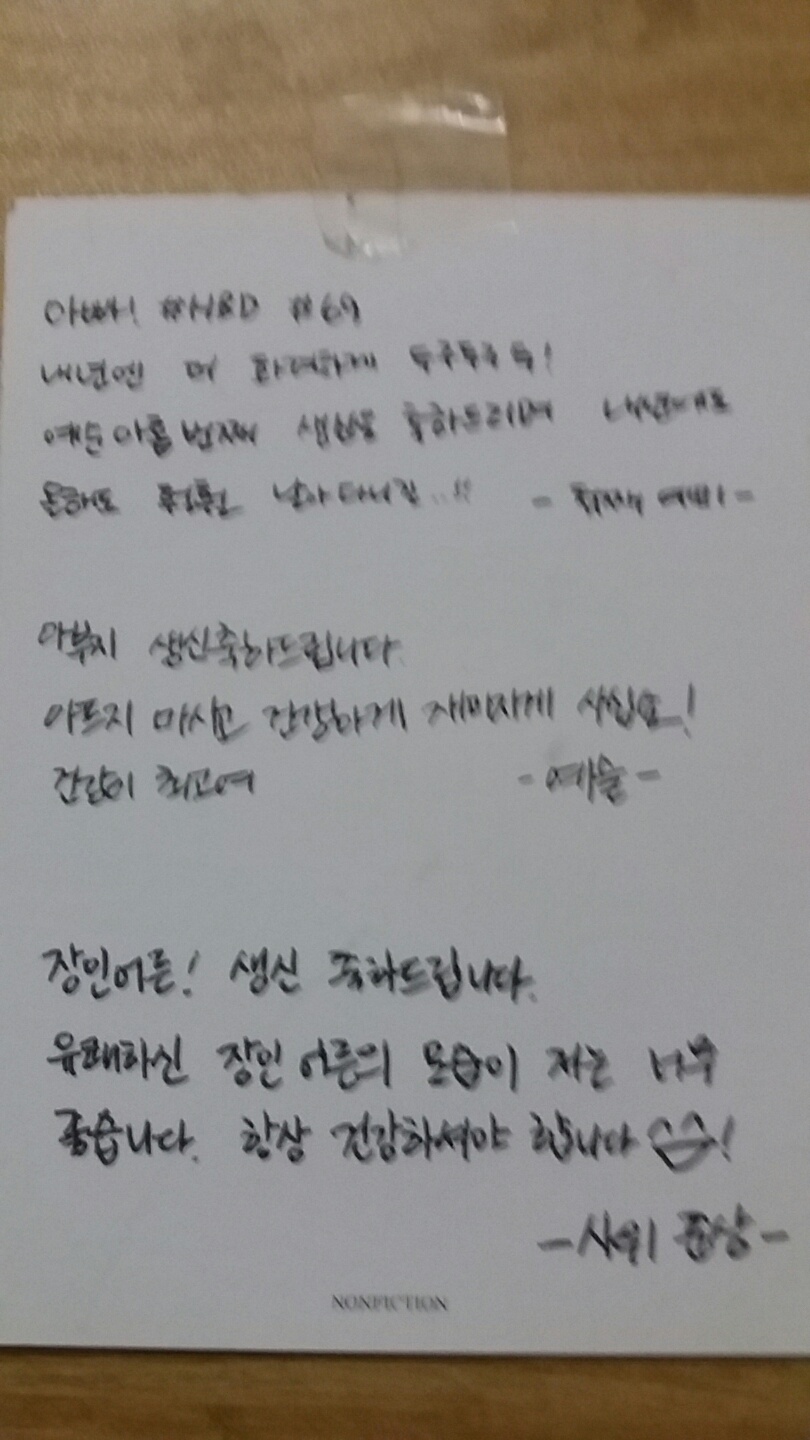 아빠! #HBD #69
내년엔 더 화려하게 두구두구두!
예순아홉번째 생신을 축하드리며 내년에도
올해도 훨훨 날아다니길..!!
아부지 생신축하드립니다
아프지 마시고 건강하게 재미지게 사십쇼!
건강이 최고여 -예슬-
장인어른! 생신 축하드립니다.
유쾌하신 장인어른의 모습이 저는 너무
좋습니다. 항상 건강하셔야 합니다 ^^!
-사위 준상-
NONFICTION